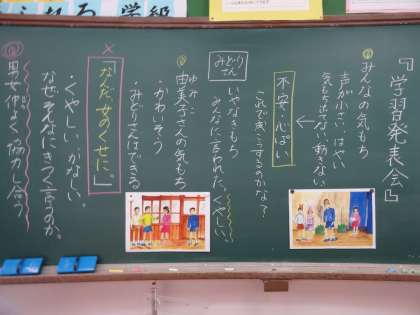 『学習発表会』
みんなの気もち
声が小さい、はやい
気もちはてない、動きない。
不安・心ぱい
これで良こうするのかな？
みどりさん
いやなきもち
みんなに言われた。くやしい。
由美子さんの気もち
ゆみこ
・かわいそう
・みどりさんはできる
「なんだ 女のくせに。」
・くやしい、かなしい。
なぜそんなにきつく言うのか。
男女仲よく協力し合う
学級